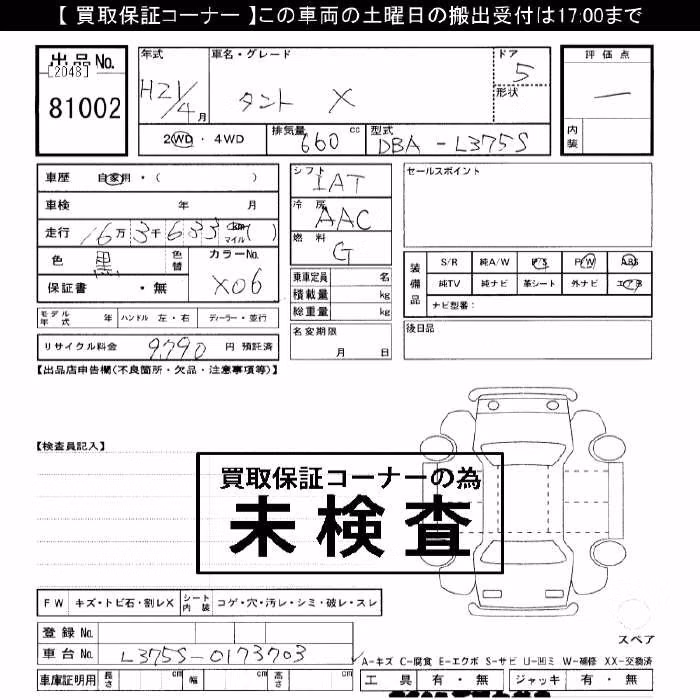 【 買取保証コーナー 】この車両の土曜日の搬出受付は17:00まで
出品No.
[2048]
81002
年式
H21/4月
車名・グレード
タント X
ドア
5
形状
評価点
―
内装
2WD・4WD
排気量 660 cc
型式 DBA-L375S
車歴 自家用・( )
車検 年 月
走行 16万3千633 km マイル ( )
色 黒 色替 カラーNo. X06
保証書 ・無
モデル年式 年 ハンドル 左・右 ディーラー・並行
リサイクル料金 9,790 円 預託済
シフト IAT
冷房 AAC
燃料 G
乗車定員 名
積載量 kg
総重量 kg
名変期限
月 日
セールスポイント
装備品
S/R 純A/W P/S P/W ABS
純TV 純ナビ 革シート 外ナビ エアB
ナビ型番:
後日品
【出品店申告欄(不良箇所・欠品・注意事項等)】
【検査員記入】
買取保証コーナーの為
未検査
FW キズ・トビ石・割レX シート内装 コゲ・穴・汚レ・シミ・破レ・スレ
スペア
登録No.
車台No. L375S-0173703
車庫証明用 長さ cm 幅 cm 高さ cm
A-キズ C-腐食 E-エクボ S-サビ U-凹ミ W-補修 XX-交換済
工具 有・無 ジャッキ 有・無